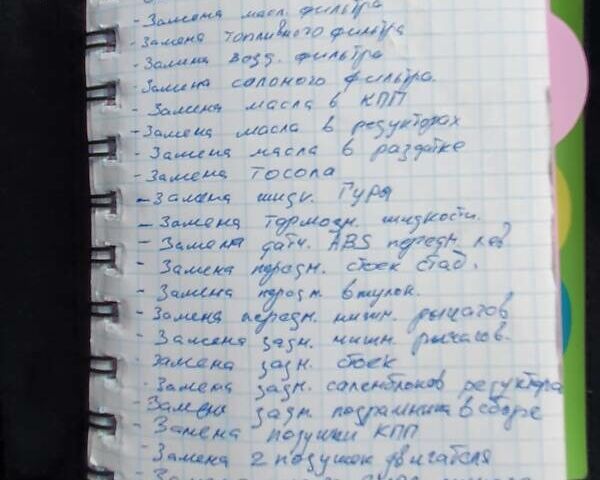 - Замена масл. фильтра
- Замена топливного фильтра
- Замена возд. фильтра
- Замена салоного фильтра.
- Замена масла в КПП
- Замена масла в редукторах
- Замена масла в раздатке
- Замена Тосола
- Замена жидк. Гура
- Замена тормозн. жидкости.
- Замена датч. ABS передн. лев
- Замена передн. стоек стаб.
- Замена передн. втулок.
- Замена передн. нижн. рычагов
- Замена задн. нижн. рычагов.
- Замена задн. стоек
- Замена задн. саленблоков редуктора
- Замена задн. подрамника в сборе
- Замена подушки КПП
- Замена 2 подушек двигателя